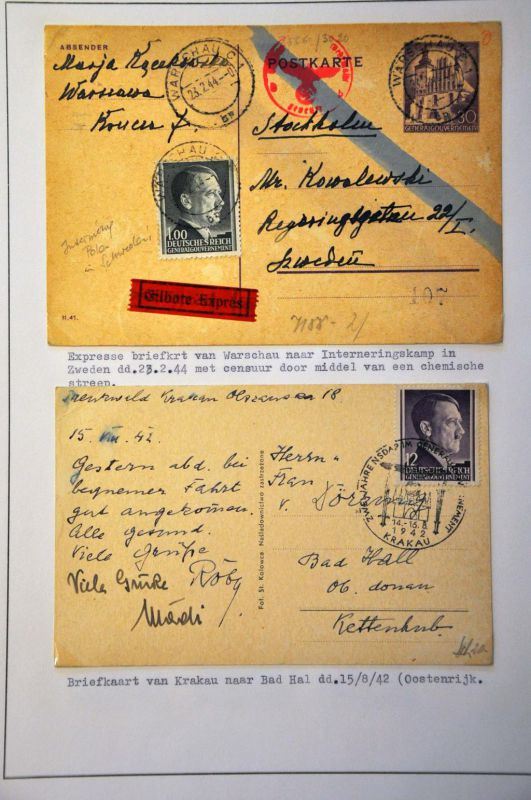 ABSENDER
Marja
Warszawa
WARSCHAU C 1
23.2.44
7500/3020
POSTKARTE
WARSCHAU C
30
GENERALGOUVERNEMENT
Stockholm
Mr. Kowalewski
Regeringsgatan 22/I
Szweden
1.00
DEUTSCHES REICH
GENERALGOUVERNEMENT
Internowany
Polak
w Schweden
Eilbote Exprès
II.41.
Expresse briefkrt van Warschau naar Interneringskamp in
Zweden dd.23.2.44 met censuur door middel van een chemische
streep.
Krakau 18
15. VIII. 42.
Gestern abd. bei
bequemer Fahrt
gut angekommen.
Alle gesund.
Viele Grüße
Roby
Viele Grüße
Mädi
Fot. St. Kolowca Naśladownictwo zastrzeżone
Herrn u
Frau
v.
Bad Hall
Ob. donau
12
DEUTSCHES REICH
GENERALGOUVERNEMENT
ZWEI JAHRE NSDAP IM GENERALGOUVERNEMENT
14.-16.8.
1942
KRAKAU
Briefkaart van Krakau naar Bad Hal dd.15/8/42 (Oostenrijk.